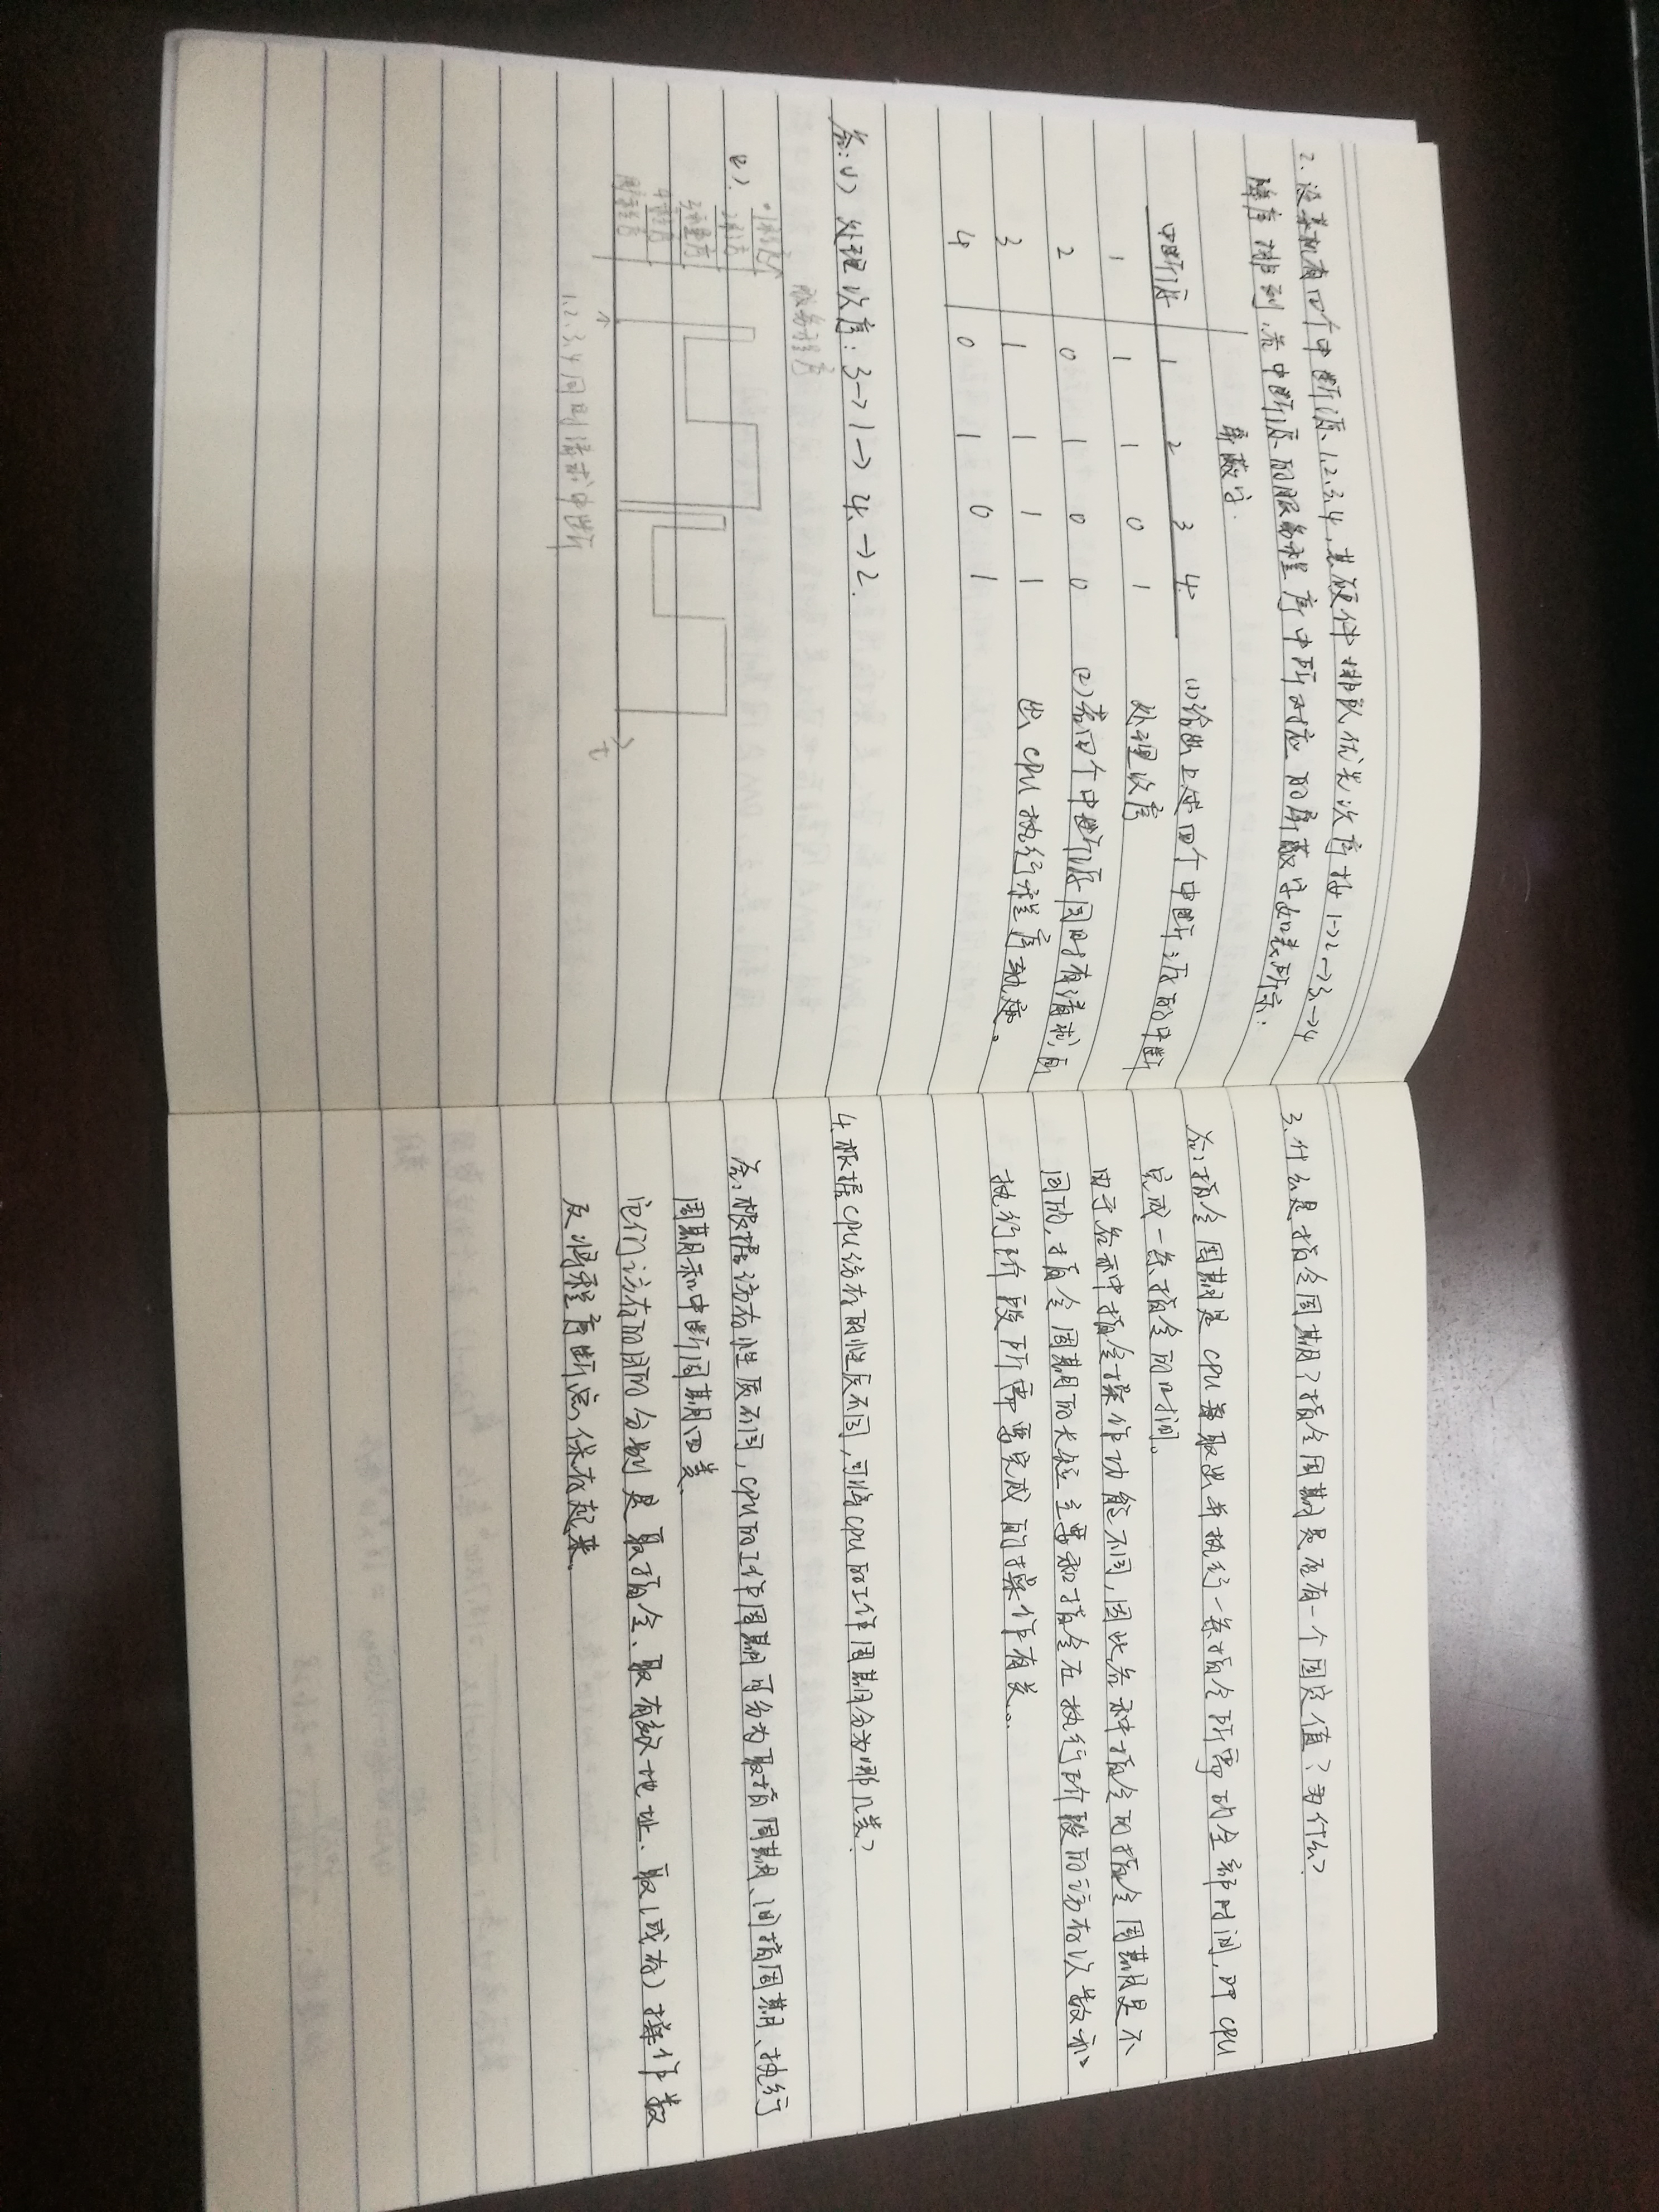 2. 设某机有四个中断源1、2、3、4,其硬件排队优先次序按1→2→3→4
降序排列,各中断源的服务程序中所对应的屏蔽字如表所示:
屏蔽字
中断源 1 2 3 4
1 1 1 0 1
2 0 1 0 0
3 1 1 1 1
4 0 1 0 1
(1)给出上述四个中断源的中断
处理次序
(2)若四个中断源同时有请求,画
出CPU执行程序轨迹。
答:(1)处理次序:3→1→4→2.
(2).
服务程序
t
1、2、3、4同时请求中断
3.什么是指令周期?指令周期是否有一个固定值?为什么?
答:指令周期是CPU每取出并执行一条指令所需的全部时间,即CPU
完成一条指令的时间。
由于各种指令操作功能不同,因此各种指令的指令周期是不
同的,指令周期的长短主要和指令在执行阶段的访存次数和
执行阶段所需要完成的操作有关。
4.根据CPU访存的性质不同,可将CPU的工作周期分为哪几类?
答:根据访存性质不同,CPU的工作周期可分为取指周期、间指周期、执行
周期和中断周期四类.
它们访存的目的分别是取指令、取有效地址、取(或存)操作数
及将程序断点保存起来.